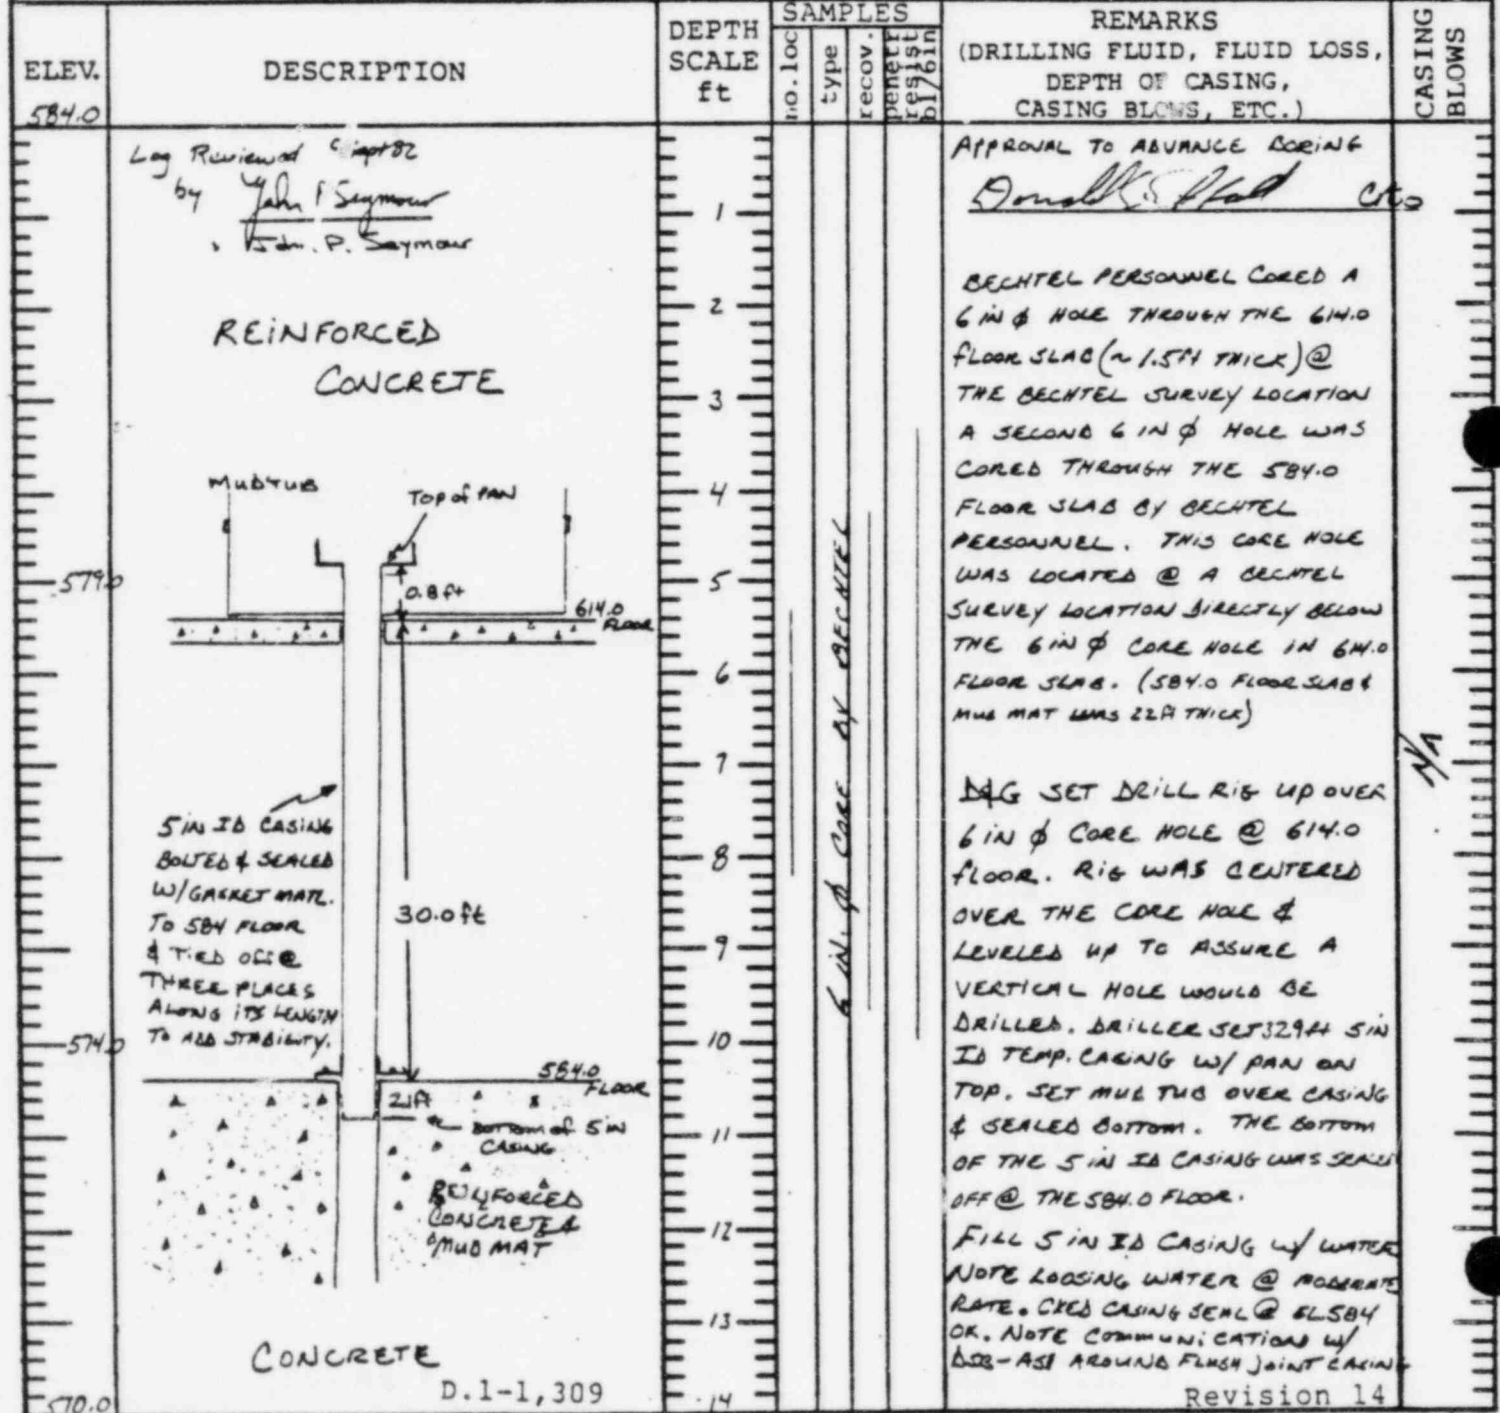 ELEV.
584.0
DESCRIPTION
DEPTH
SCALE
ft
SAMPLES
no. loc
type
recov.
penetr
resist
bl/6in
REMARKS
(DRILLING FLUID, FLUID LOSS,
DEPTH OF CASING,
CASING BLOWS, ETC.)
CASING
BLOWS
Log Reviewed Sept 82
by John P Seymour
John. P. Seymour
REINFORCED
CONCRETE
MUDTUB
TOP of PAN
0.8 ft
614.0
FLOOR
5 IN ID CASING
BOLTED & SEALED
W/GASKET MATL.
TO 584 FLOOR
& TIED OFF @
THREE PLACES
ALONG ITS LENGTH
TO ADD STABILITY.
30.0 ft
584.0
FLOOR
2.1 ft
BOTTOM of 5 IN
CASING
REINFORCED
CONCRETE &
MUD MAT
CONCRETE
D.1-1,309
579.0
574.0
570.0
1
2
3
4
5
6
7
8
9
10
11
12
13
14
6 IN. φ CORE BY BECHTEL
APPROVAL TO ADVANCE BORING
BECHTEL PERSONNEL CORED A
6 IN φ HOLE THROUGH THE 614.0
FLOOR SLAB (~ 1.5 FT THICK) @
THE BECHTEL SURVEY LOCATION
A SECOND 6 IN φ HOLE WAS
CORED THROUGH THE 584.0
FLOOR SLAB BY BECHTEL
PERSONNEL. THIS CORE HOLE
WAS LOCATED @ A BECHTEL
SURVEY LOCATION DIRECTLY BELOW
THE 6 IN φ CORE HOLE IN 614.0
FLOOR SLAB. (584.0 FLOOR SLAB &
MUD MAT WAS 22 ft THICK)
D&G SET DRILL RIG UP OVER
6 IN φ CORE HOLE @ 614.0
FLOOR. RIG WAS CENTERED
OVER THE CORE HOLE &
LEVELED UP TO ASSURE A
VERTICAL HOLE WOULD BE
DRILLED. DRILLER SET 32.9 ft 5 IN
ID TEMP. CASING W/ PAN ON
TOP. SET MUD TUB OVER CASING
& SEALED BOTTOM. THE BOTTOM
OF THE 5 IN ID CASING WAS SEALED
OFF @ THE 584.0 FLOOR.
FILL 5 IN ID CASING W/ WATER
NOTE LOOSING WATER @ MODERATE
RATE. CKED CASING SEAL @ EL 584
OK. NOTE COMMUNICATION W/
DSB-AS1 AROUND FLUSH JOINT CASING
Revision 14
N/A